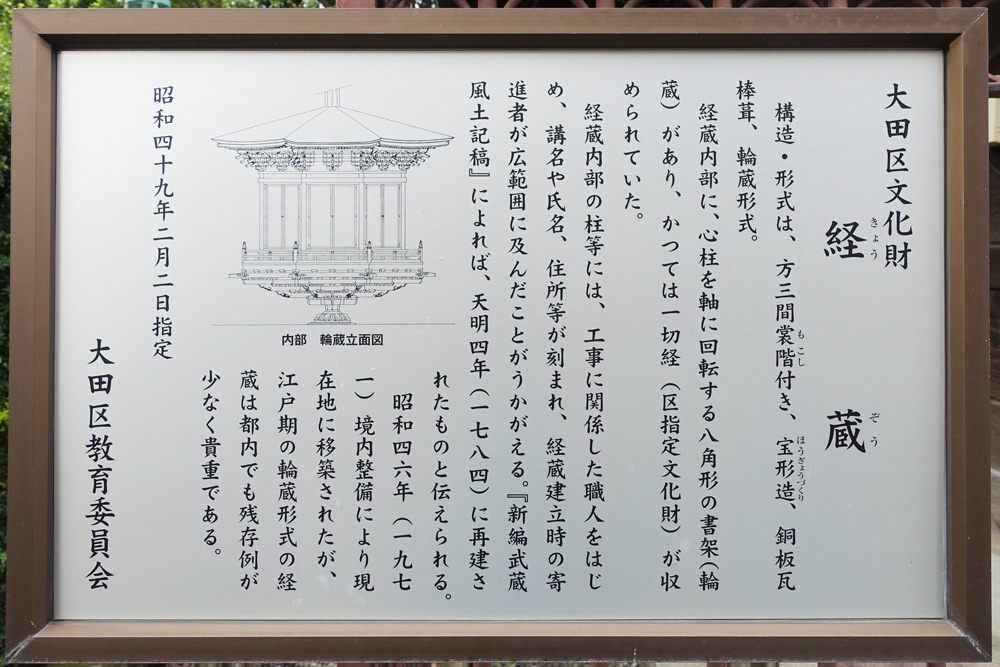 大田区文化財
経蔵
きょうぞう
構造・形式は、方三間裳階付き、宝形造、銅板瓦
もこし
ほうぎょうづくり
棒葺、輪蔵形式。
経蔵内部に、心柱を軸に回転する八角形の書架(輪
蔵)があり、かつては一切経(区指定文化財)が収
められていた。
経蔵内部の柱等には、工事に関係した職人をはじ
め、講名や氏名、住所等が刻まれ、経蔵建立時の寄
進者が広範囲に及んだことがうかがえる。『新編武蔵
風土記稿』によれば、天明四年(一七八四)に再建さ
れたものと伝えられる。
昭和四六年(一九七
一)境内整備により現
在地に移築されたが、
江戸期の輪蔵形式の経
蔵は都内でも残存例が
少なく貴重である。
内部 輪蔵立面図
昭和四十九年二月二日指定
大田区教育委員会